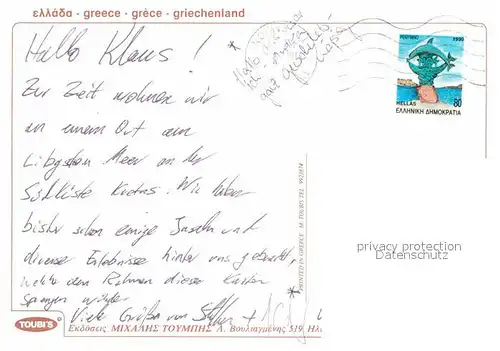 ελλάδα - greece - grèce - griechenland
Hallo Klaus!
Zur Zeit wohnen wir
an einem Ort am
Libyschen Meer an der
Südküste Kretas. Wir haben
bisher schon einige Inseln und
diverse Erlebnisse hinter uns gebracht,
welche den Rahmen dieser Karten
sprengen würde.
Viele Grüße von Steffen +
* Hallo
ich
ganz
1990
HELLAS 80
ΕΛΛΗΝΙΚΗ ΔΗΜΟΚΡΑΤΙΑ
privacy protection
Datenschutz
PRINTED IN GREECE M. TOUBIS TEL. 9923874
*
TOUBI'S
Εκδόσεις ΜΙΧΑΛΗΣ ΤΟΥΜΠΗΣ Λ. Βουλιαγμένης 519 Ηλι